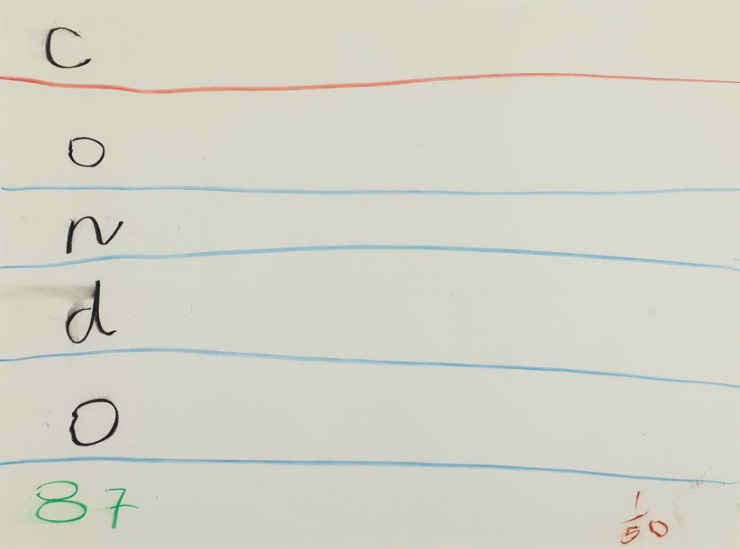 C
o
n
d
o
87
1/50